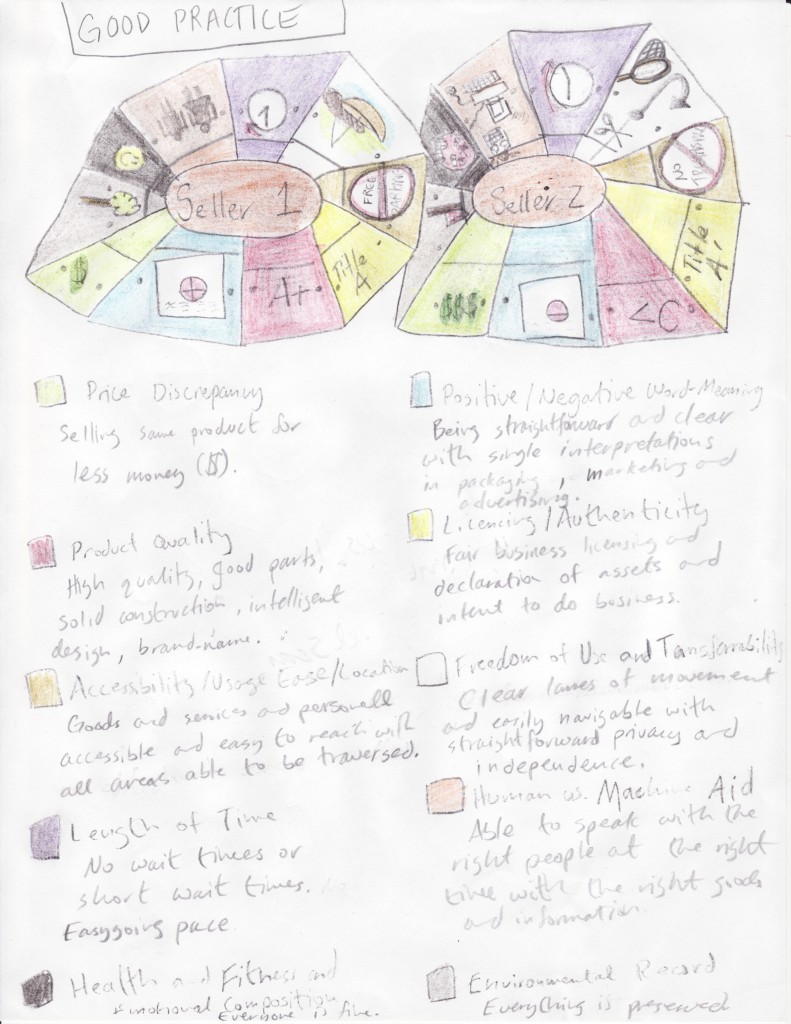 GOOD PRACTICE
1
FREE PARKING
Title
A
A+
$
Seller 1
NO
Title
A,
<C
$$$
Seller 2
Price Discrepancy
Selling same product for
less money ($).
Product Quality
High quality, good parts,
solid construction, intelligent
design, brand-name.
Accessibility/Usage Ease/Location
Goods and services and personell
accessible and easy to reach with
all areas able to be traversed.
Length of Time
No wait times or
short wait times.
Easygoing pace
Health and Fitness and
Emotional Composition
Everyone is fine.
Positive/Negative Word-Meaning
Being straightforward and clear
with single interpretations
in packaging, marketing and
advertising.
Licencing/Authenticity
Fair business licensing and
declaration of assets and
intent to do business.
Freedom of Use and Transferrability
Clear lanes of movement
and easily navigable with
straightforward privacy and
independence.
Human vs. Machine Aid
Able to speak with the
right people at the right
time with the right goods
and information.
Environmental Record
Everything is preserved